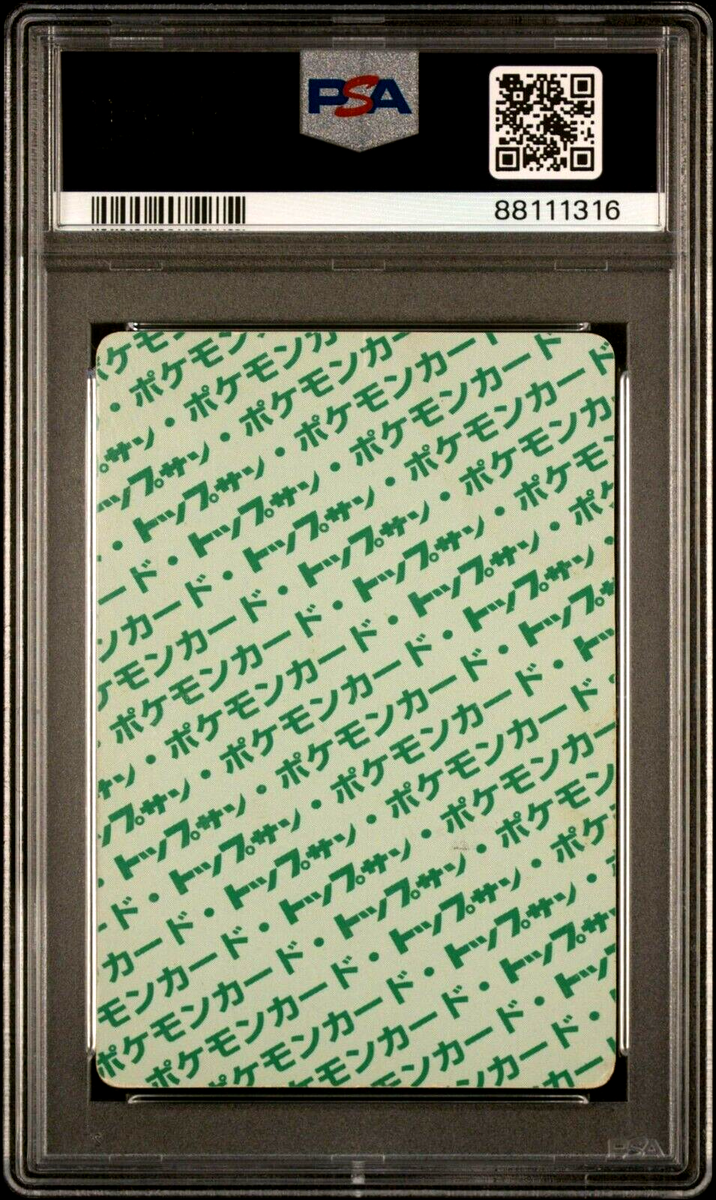 PSA
88111316
ポケモ
・ポケモン
サン・ポケモンカ
ップサン・ポケモンカー
・トップサン・ポケモンカード
ード・トップサン・ポケモンカード
ンカード・トップサン・ポケモンカ
ケモンカード・トップサン・ポケモン
ポケモンカード・トップサン・ポケ
・ポケモンカード・トップサン・
サン・ポケモンカード・トップサ
ップサン・ポケモンカード・トッ
トップサン・ポケモンカード・
ド・トップサン・ポケモンカー
カード・トップサン・ポケモン
モンカード・トップサン・ポケ
ポケモンカード・トップサン・
ポケモンカード・トップサン
ケモンカード・トッ
モンカード・
カー
PSA